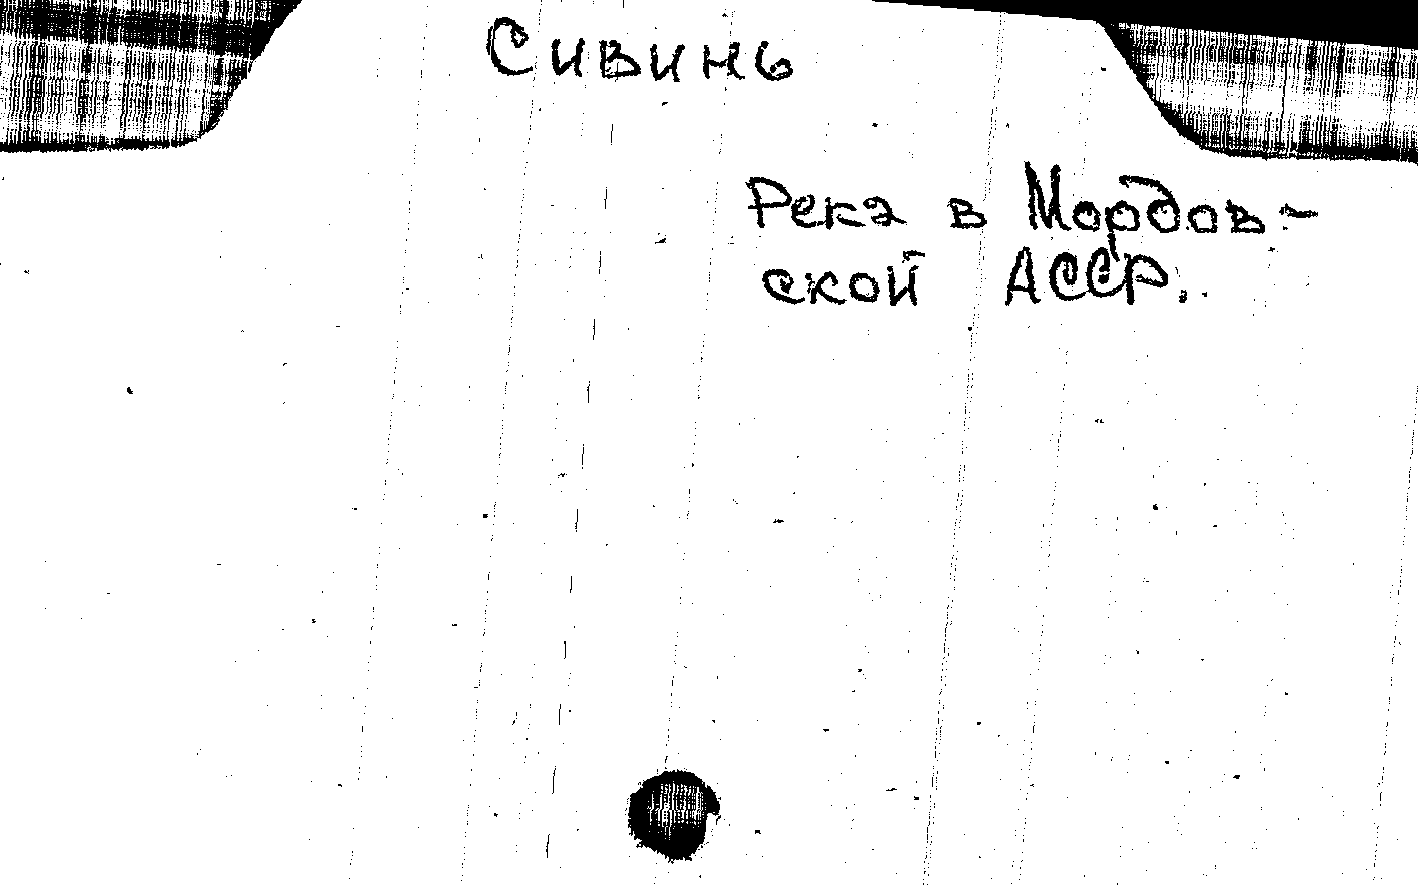 Сивинь
Река в Мордов-
ской АССР.